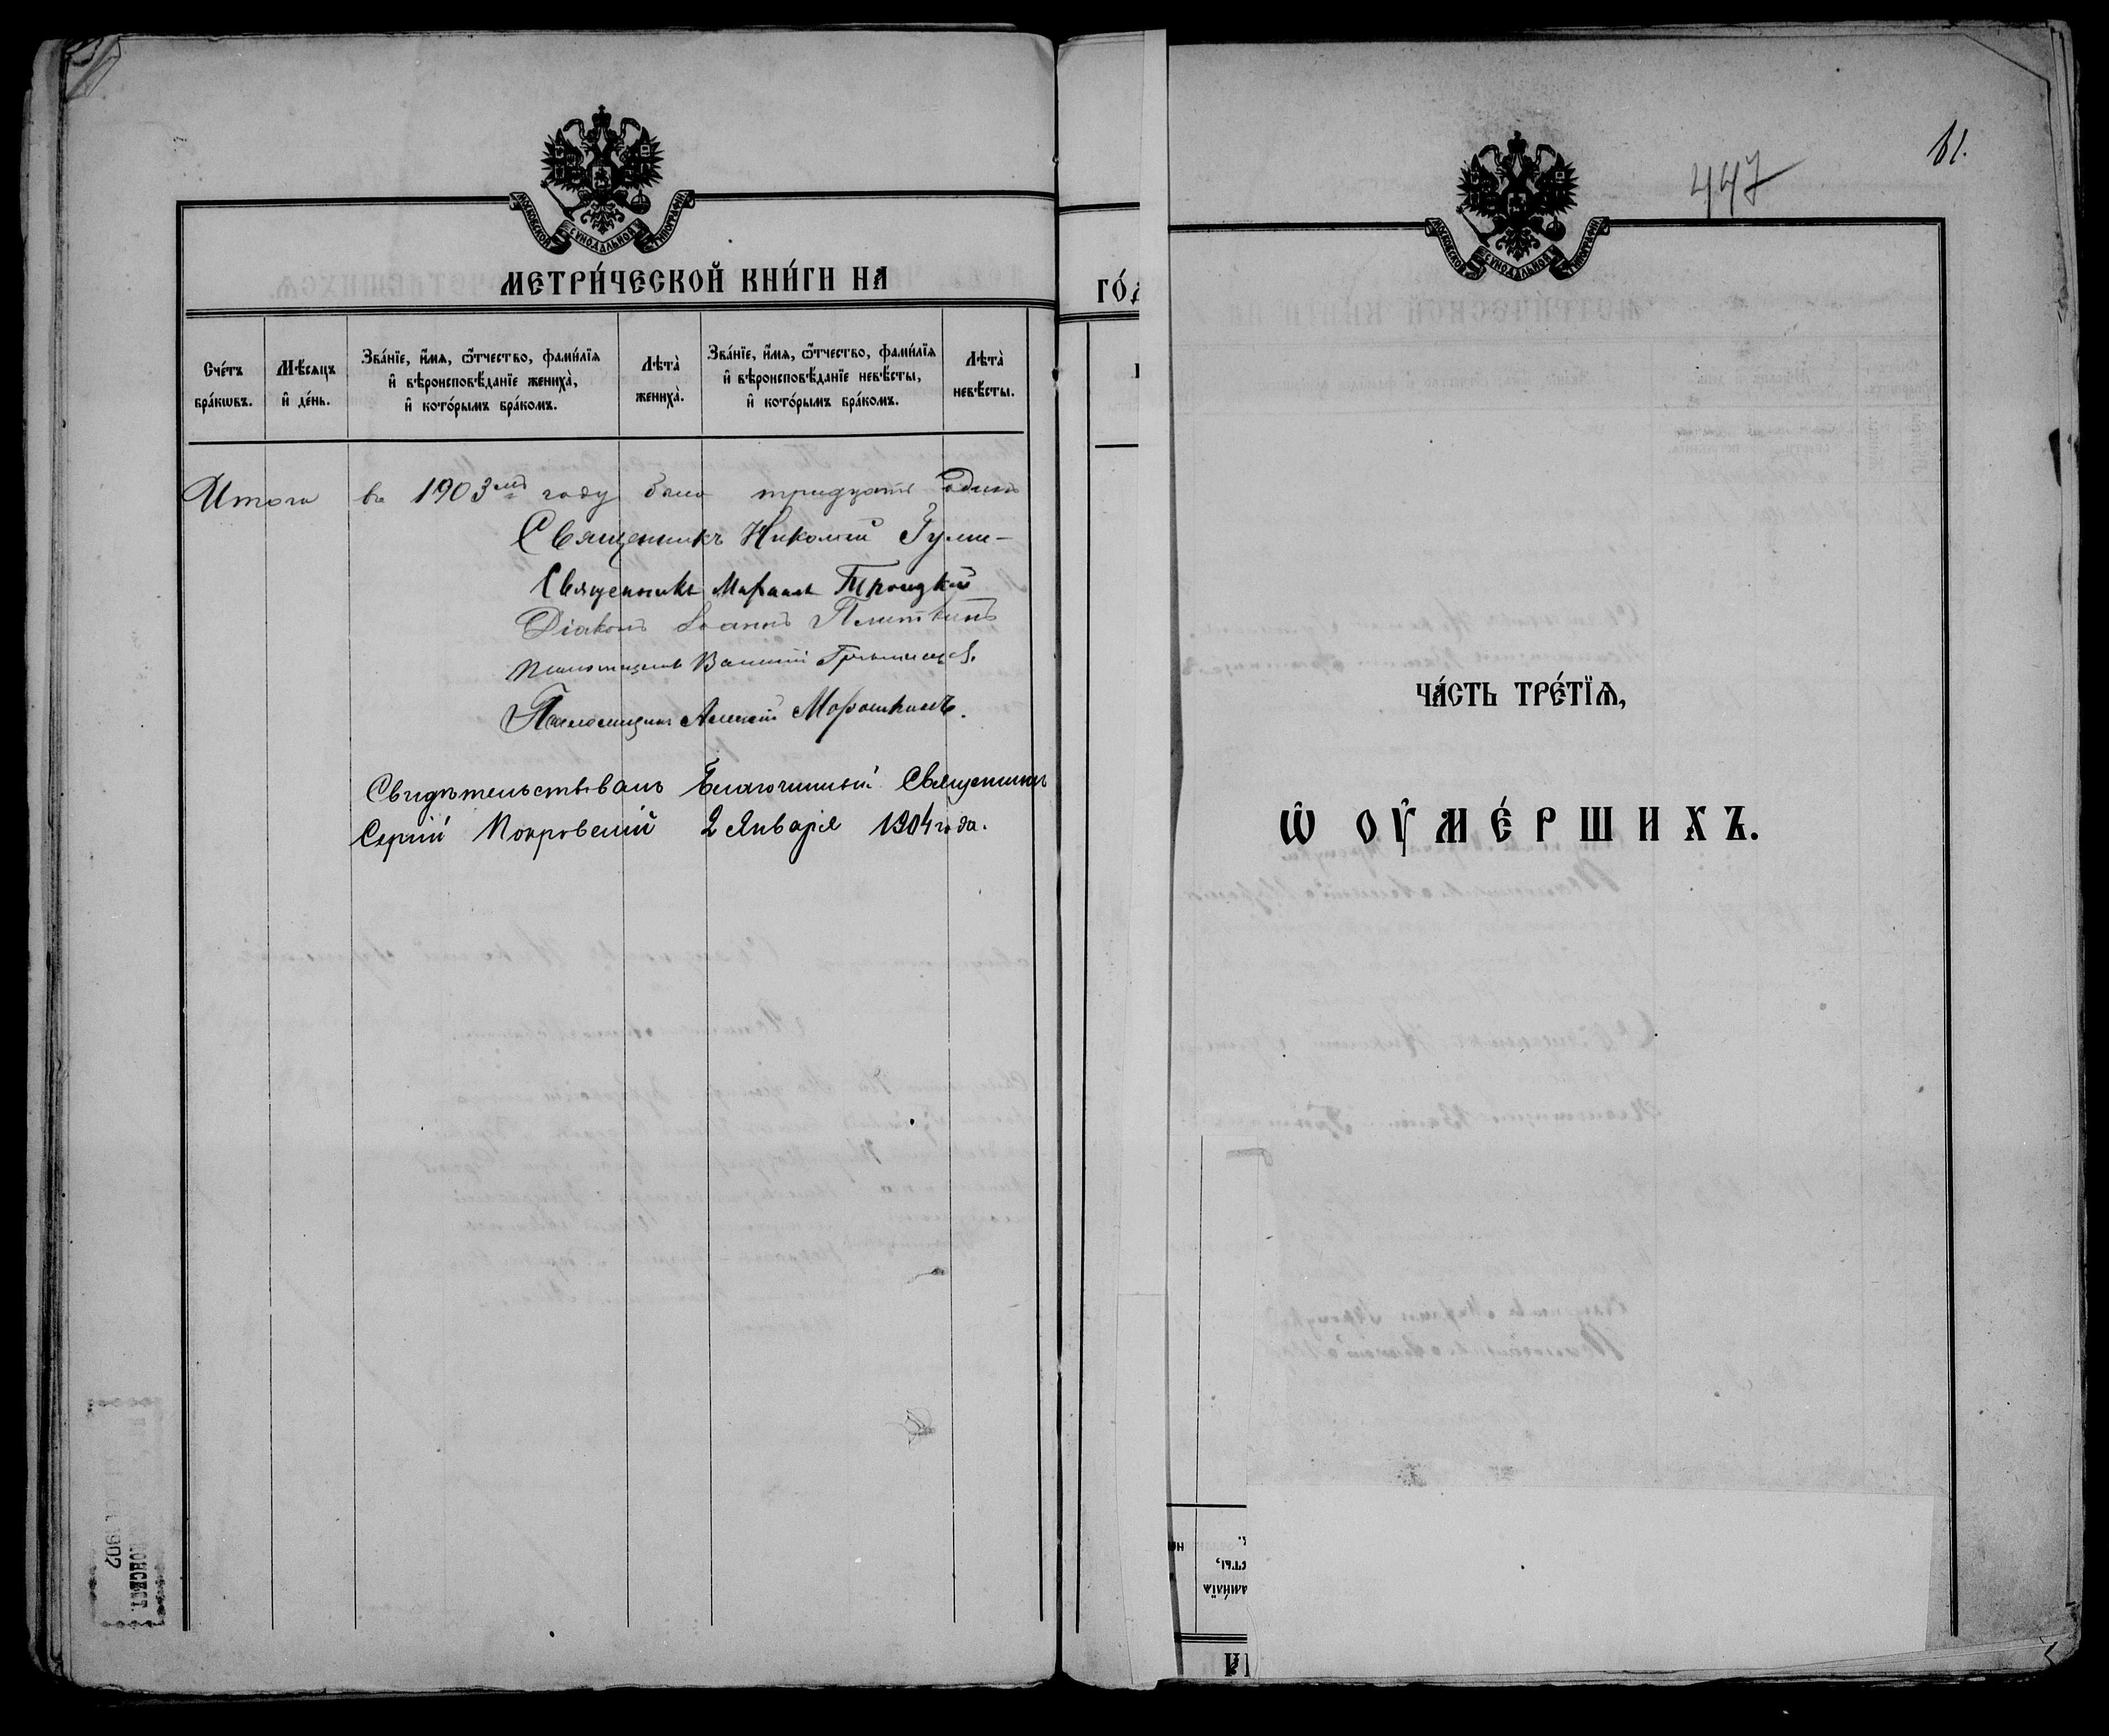 МОСКОВСКОЙ СѴНОДАЛЬНОЙ ТИПОГРАФІИ
МЕТРИ́ЧЕСКОЙ КНИ́ГИ НА
Сче́тъ бра́кѡвъ.
Мѣ́сѧцъ и҆ де́нь.
Зва́нїе, и҆́мѧ, ѻ҆́тчество, фами́лїѧ
и҆ вѣроисповѣ́данїе женихà,
и҆ кото́рымъ бра́комъ.
Лѣтà женихà.
Зва́нїе, и҆́мѧ, ѻ҆́тчество, фами́лїѧ
и҆ вѣроисповѣ́данїе невѣ́сты,
и҆ кото́рымъ бра́комъ.
Лѣтà невѣ́сты.
Итого въ 1903мъ году было тридцать один
Священникъ Николай
Священникъ Михаилъ Троицкій
Діаконъ Іоаннъ
Псаломщикъ Василій
Псаломщикъ Алексій Морошкинъ.
Свидѣтельствовалъ Благочинный Священникъ
Сергій Покровскій 2 Января 1904 года.
1902
ГО́Д
447
61.
МОСКОВСКОЙ СѴНОДАЛЬНОЙ ТИПОГРАФІИ
ЧА́СТЬ ТРЕ́ТЇѦ,
Ѡ҆ ОУ҆МЕ́РШИХЪ.